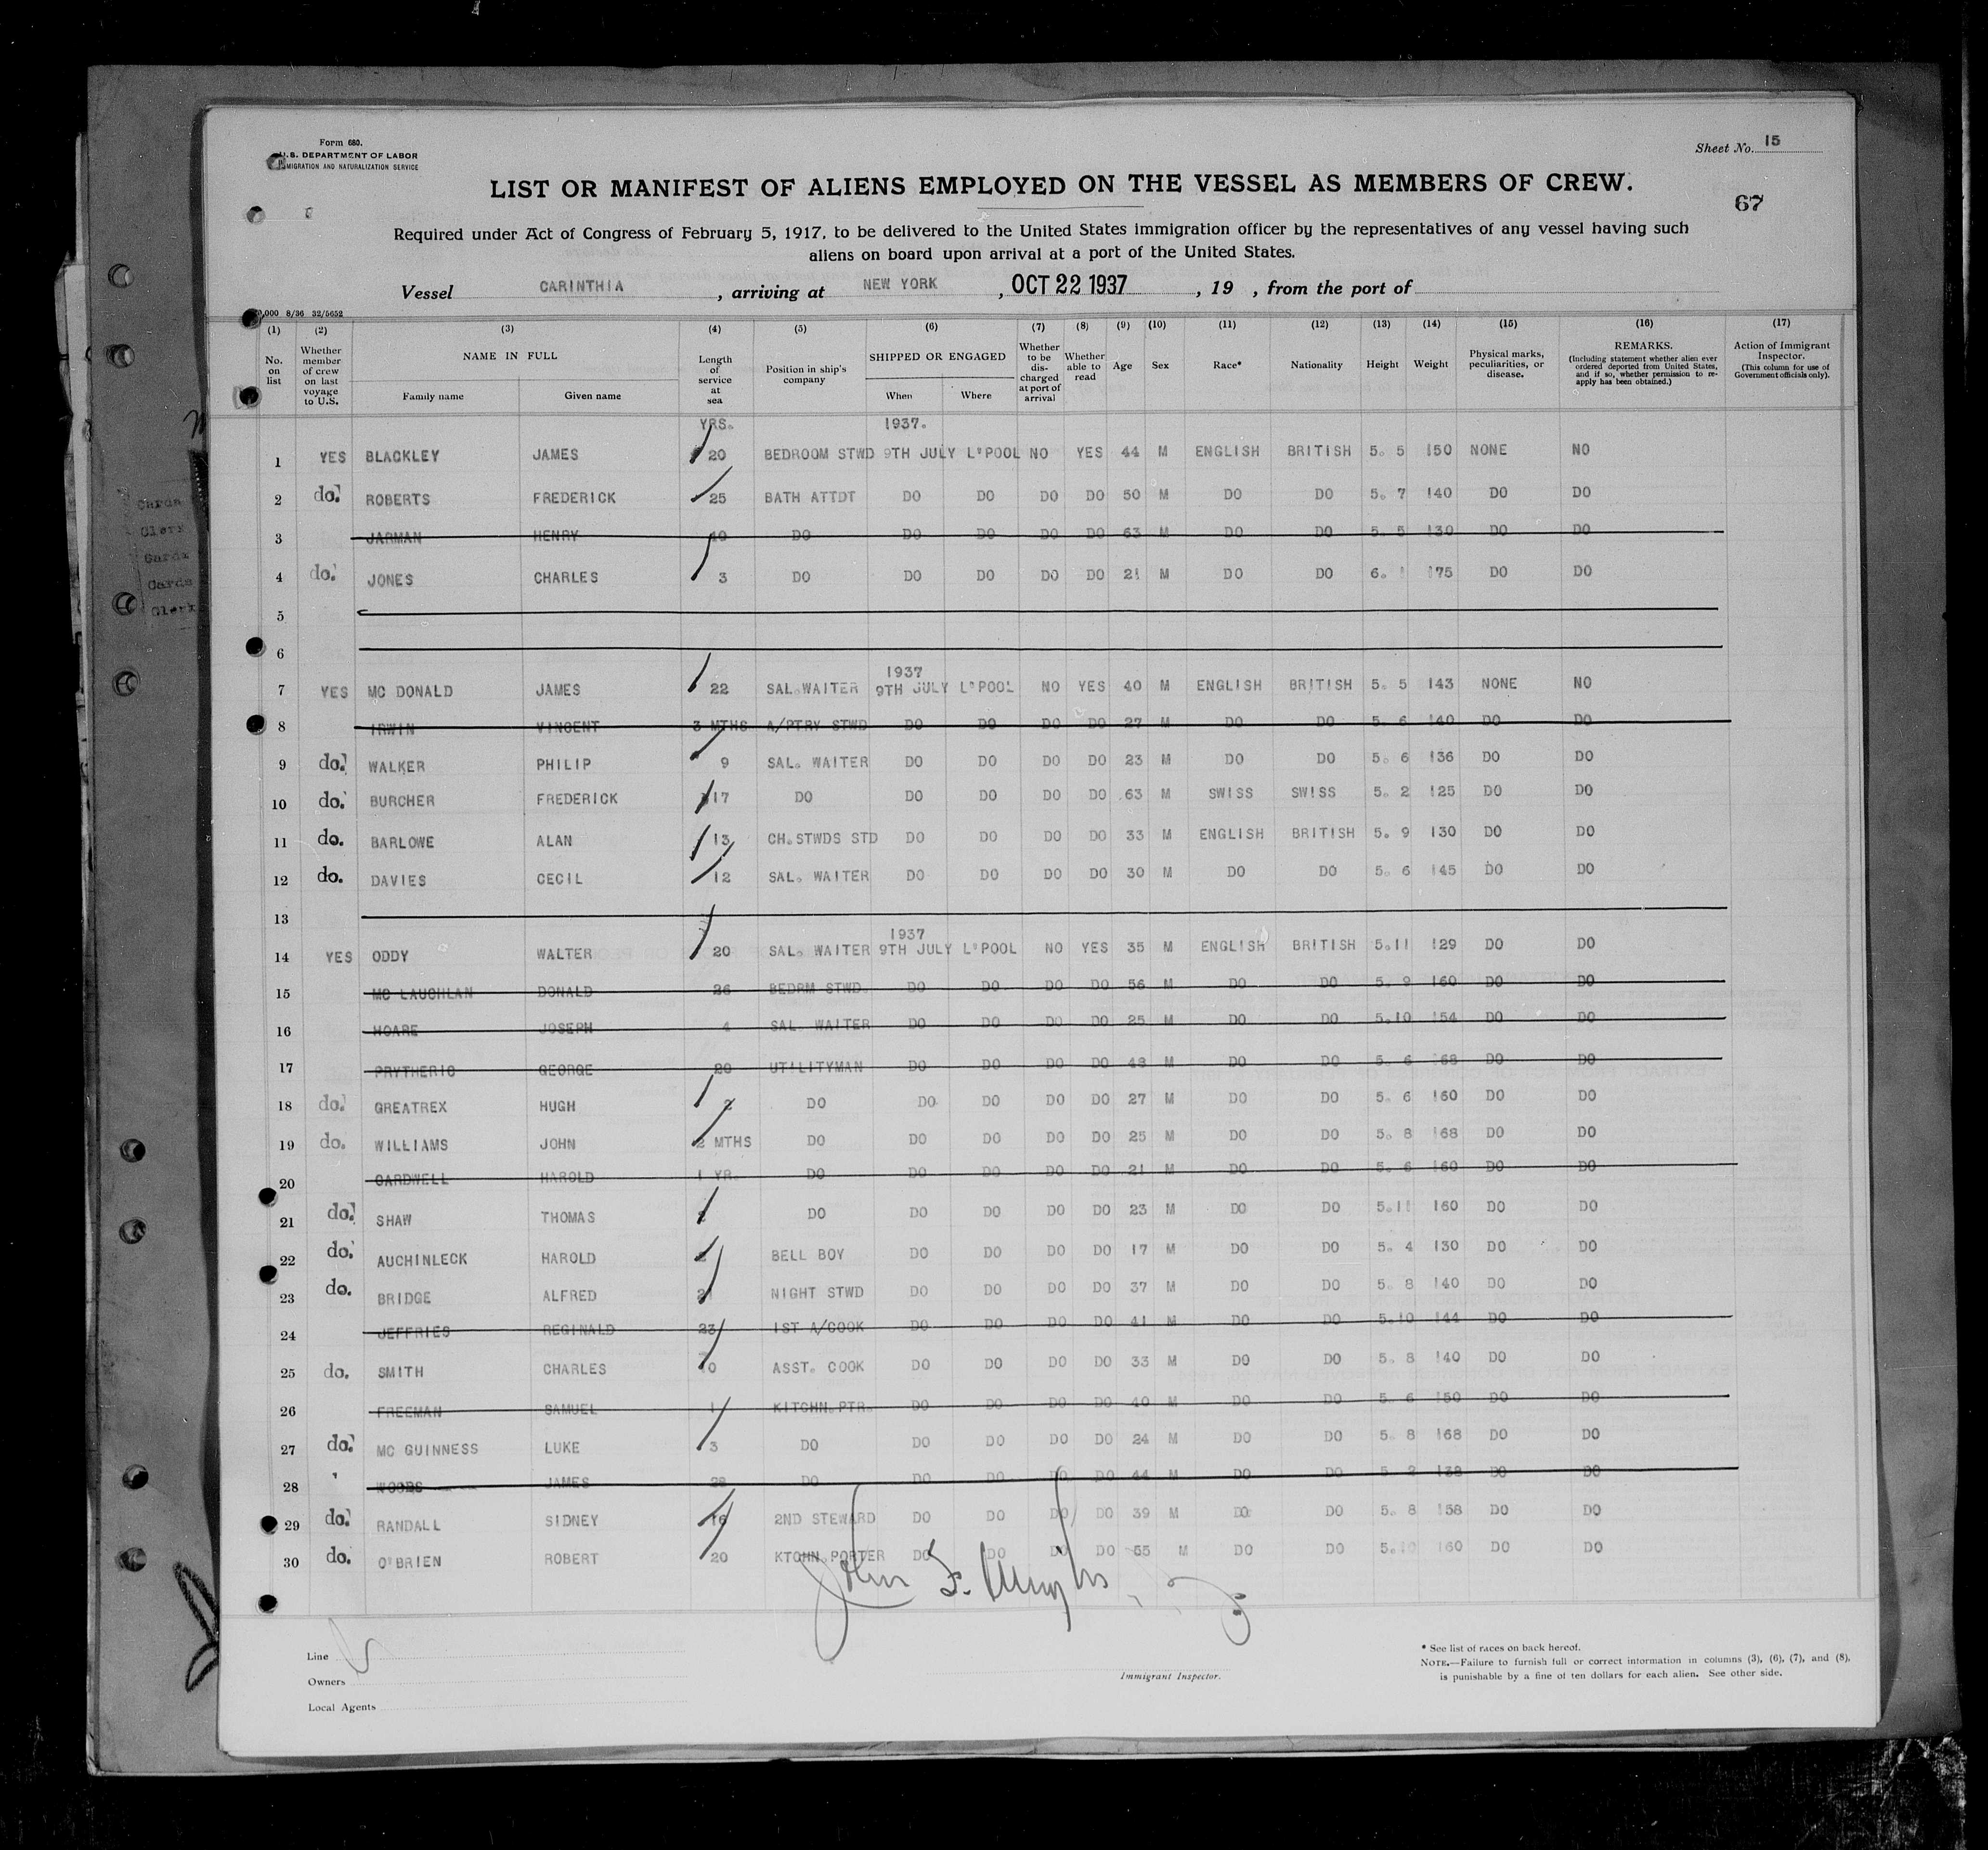 Form 680.
U.S. DEPARTMENT OF LABOR
IMMIGRATION AND NATURALIZATION SERVICE
Sheet No. 15
LIST OR MANIFEST OF ALIENS EMPLOYED ON THE VESSEL AS MEMBERS OF CREW.
67
Required under Act of Congress of February 5, 1917, to be delivered to the United States immigration officer by the representatives of any vessel having such
aliens on board upon arrival at a port of the United States.
Vessel CARINTHIA, arriving at NEW YORK, OCT 22 1937, 19 , from the port of
,000 8/36 32/5652
(1) (2) (3) (4) (5) (6) (7) (8) (9) (10) (11) (12) (13) (14) (15) (16) (17)
No. on list
Whether member of crew on last voyage to U.S.
NAME IN FULL
Family name Given name
Length of service at sea
Position in ship's company
SHIPPED OR ENGAGED
When Where
Whether to be discharged at port of arrival
Whether able to read
Age
Sex
Race*
Nationality
Height
Weight
Physical marks, peculiarities, or disease.
REMARKS.
(Including statement whether alien ever ordered deported from United States, and if so, whether permission to reapply has been obtained.)
Action of Immigrant Inspector.
(This column for use of Government officials only).
YRS. 1937.
1 YES BLACKLEY JAMES 20 BEDROOM STWD 9TH JULY L'POOL NO YES 44 M ENGLISH BRITISH 5. 5 150 NONE NO
2 do. ROBERTS FREDERICK 25 BATH ATTDT DO DO DO DO 50 M DO DO 5. 7 140 DO DO
3 JARMAN HENRY DO DO DO DO DO 63 M DO DO 5. 5 130 DO DO
4 do. JONES CHARLES 3 DO DO DO DO DO 21 M DO DO 6. 1 175 DO DO
5
6
1937
7 YES MC DONALD JAMES 22 SAL.WAITER 9TH JULY L'POOL NO YES 40 M ENGLISH BRITISH 5. 5 143 NONE NO
8 IRWIN VINCENT 3 MTHS A/PTRY STWD DO DO DO DO 27 M DO DO 5. 6 140 DO DO
9 do. WALKER PHILIP 9 SAL. WAITER DO DO DO DO 23 M DO DO 5. 6 136 DO DO
10 do. BURCHER FREDERICK 17 DO DO DO DO DO 63 M SWISS SWISS 5. 2 125 DO DO
11 do. BARLOWE ALAN 13 CH.STWDS STD DO DO DO DO 33 M ENGLISH BRITISH 5. 9 130 DO DO
12 do. DAVIES CECIL 12 SAL. WAITER DO DO DO DO 30 M DO DO 5. 6 145 DO DO
13
1937
14 YES ODDY WALTER 20 SAL. WAITER 9TH JULY L'POOL NO YES 35 M ENGLISH BRITISH 5.11 129 DO DO
15 MC LAUCHLAN DONALD 26 BEDRM STWD. DO DO DO DO 56 M DO DO 5. 9 160 DO DO
16 HOARE JOSEPH 4 SAL. WAITER DO DO DO DO 25 M DO DO 5.10 154 DO DO
17 PRYTHERIC GEORGE 20 UTILITYMAN DO DO DO DO 48 M DO DO 5. 6 168 DO DO
18 do. GREATREX HUGH 2 DO DO DO DO DO 27 M DO DO 5. 6 160 DO DO
19 do. WILLIAMS JOHN MTHS DO DO DO DO DO 25 M DO DO 5. 8 168 DO DO
20 CARDWELL HAROLD 1 YR. DO DO DO DO DO 21 M DO DO 5. 6 160 DO DO
21 do. SHAW THOMAS DO DO DO DO DO 23 M DO DO 5.11 160 DO DO
22 do. AUCHINLECK HAROLD BELL BOY DO DO DO DO 17 M DO DO 5. 4 130 DO DO
23 do. BRIDGE ALFRED NIGHT STWD DO DO DO DO 37 M DO DO 5. 8 140 DO DO
24 JEFFRIES REGINALD 23 1ST A/COOK DO DO DO DO 41 M DO DO 5.10 144 DO DO
25 do. SMITH CHARLES 10 ASST. COOK DO DO DO DO 33 M DO DO 5. 8 140 DO DO
26 FREEMAN SAMUEL KITCHN.PTR. DO DO DO DO 40 M DO DO 5. 6 150 DO DO
27 do. MC GUINNESS LUKE 3 DO DO DO DO DO 24 M DO DO 5. 8 168 DO DO
28 WOODS JAMES 28 DO DO DO DO DO 44 M DO DO 5. 2 138 DO DO
29 do. RANDALL SIDNEY 16 2ND STEWARD DO DO DO DO 39 M DO DO 5. 8 158 DO DO
30 do. O'BRIEN ROBERT 20 KTCHN.PORTER DO DO DO DO 55 M DO DO 5.10 160 DO DO
John F.
Line
Owners
Local Agents
Immigrant Inspector.
* See list of races on back hereof.
NOTE.—Failure to furnish full or correct information in columns (3), (6), (7), and (8),
is punishable by a fine of ten dollars for each alien. See other side.
Cards
Clerk
Cards
Cards
Clerk